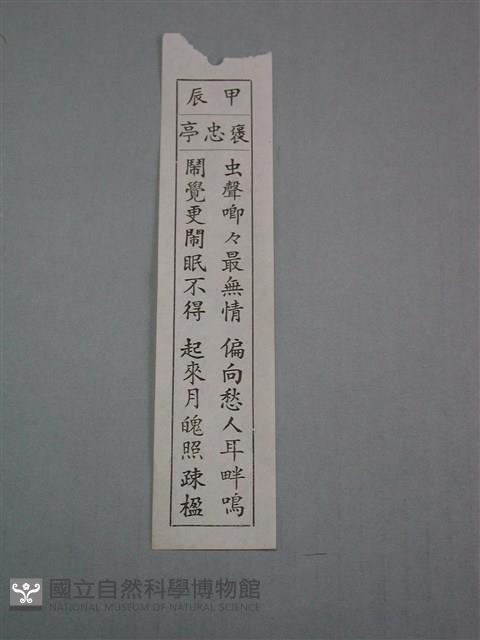 甲辰
褒忠亭
虫聲喞々最無情 偏向愁人耳畔鳴
鬧覺更鬧眠不得 起來月魄照疎楹
國立自然科學博物館
NATIONAL MUSEUM OF NATURAL SCIENCE